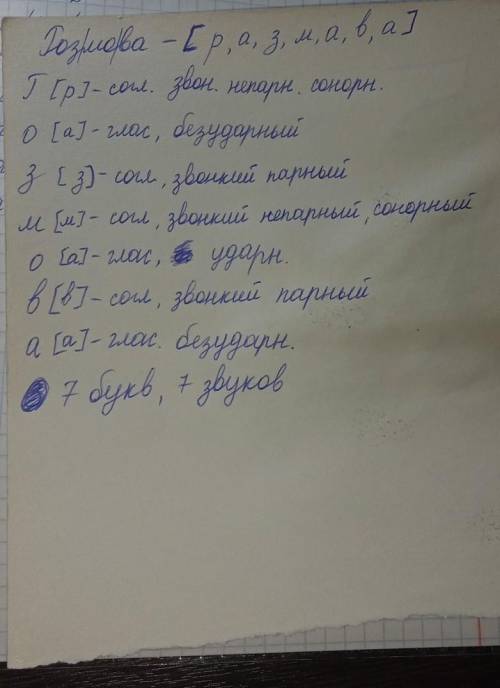 Роз/мо/ва - [р, а, з, м, а, в, а]
Р [р] - согл. звон. непарн. сонорн.
о [а] - глас, безударный
з [з] - согл, звонкий парный
м [м] - согл, звонкий непарный, сонорный
о [а] - глас, ударн.
в [в] - согл, звонкий парный
а [а] - глас. безударн.
7 букв, 7 звуков